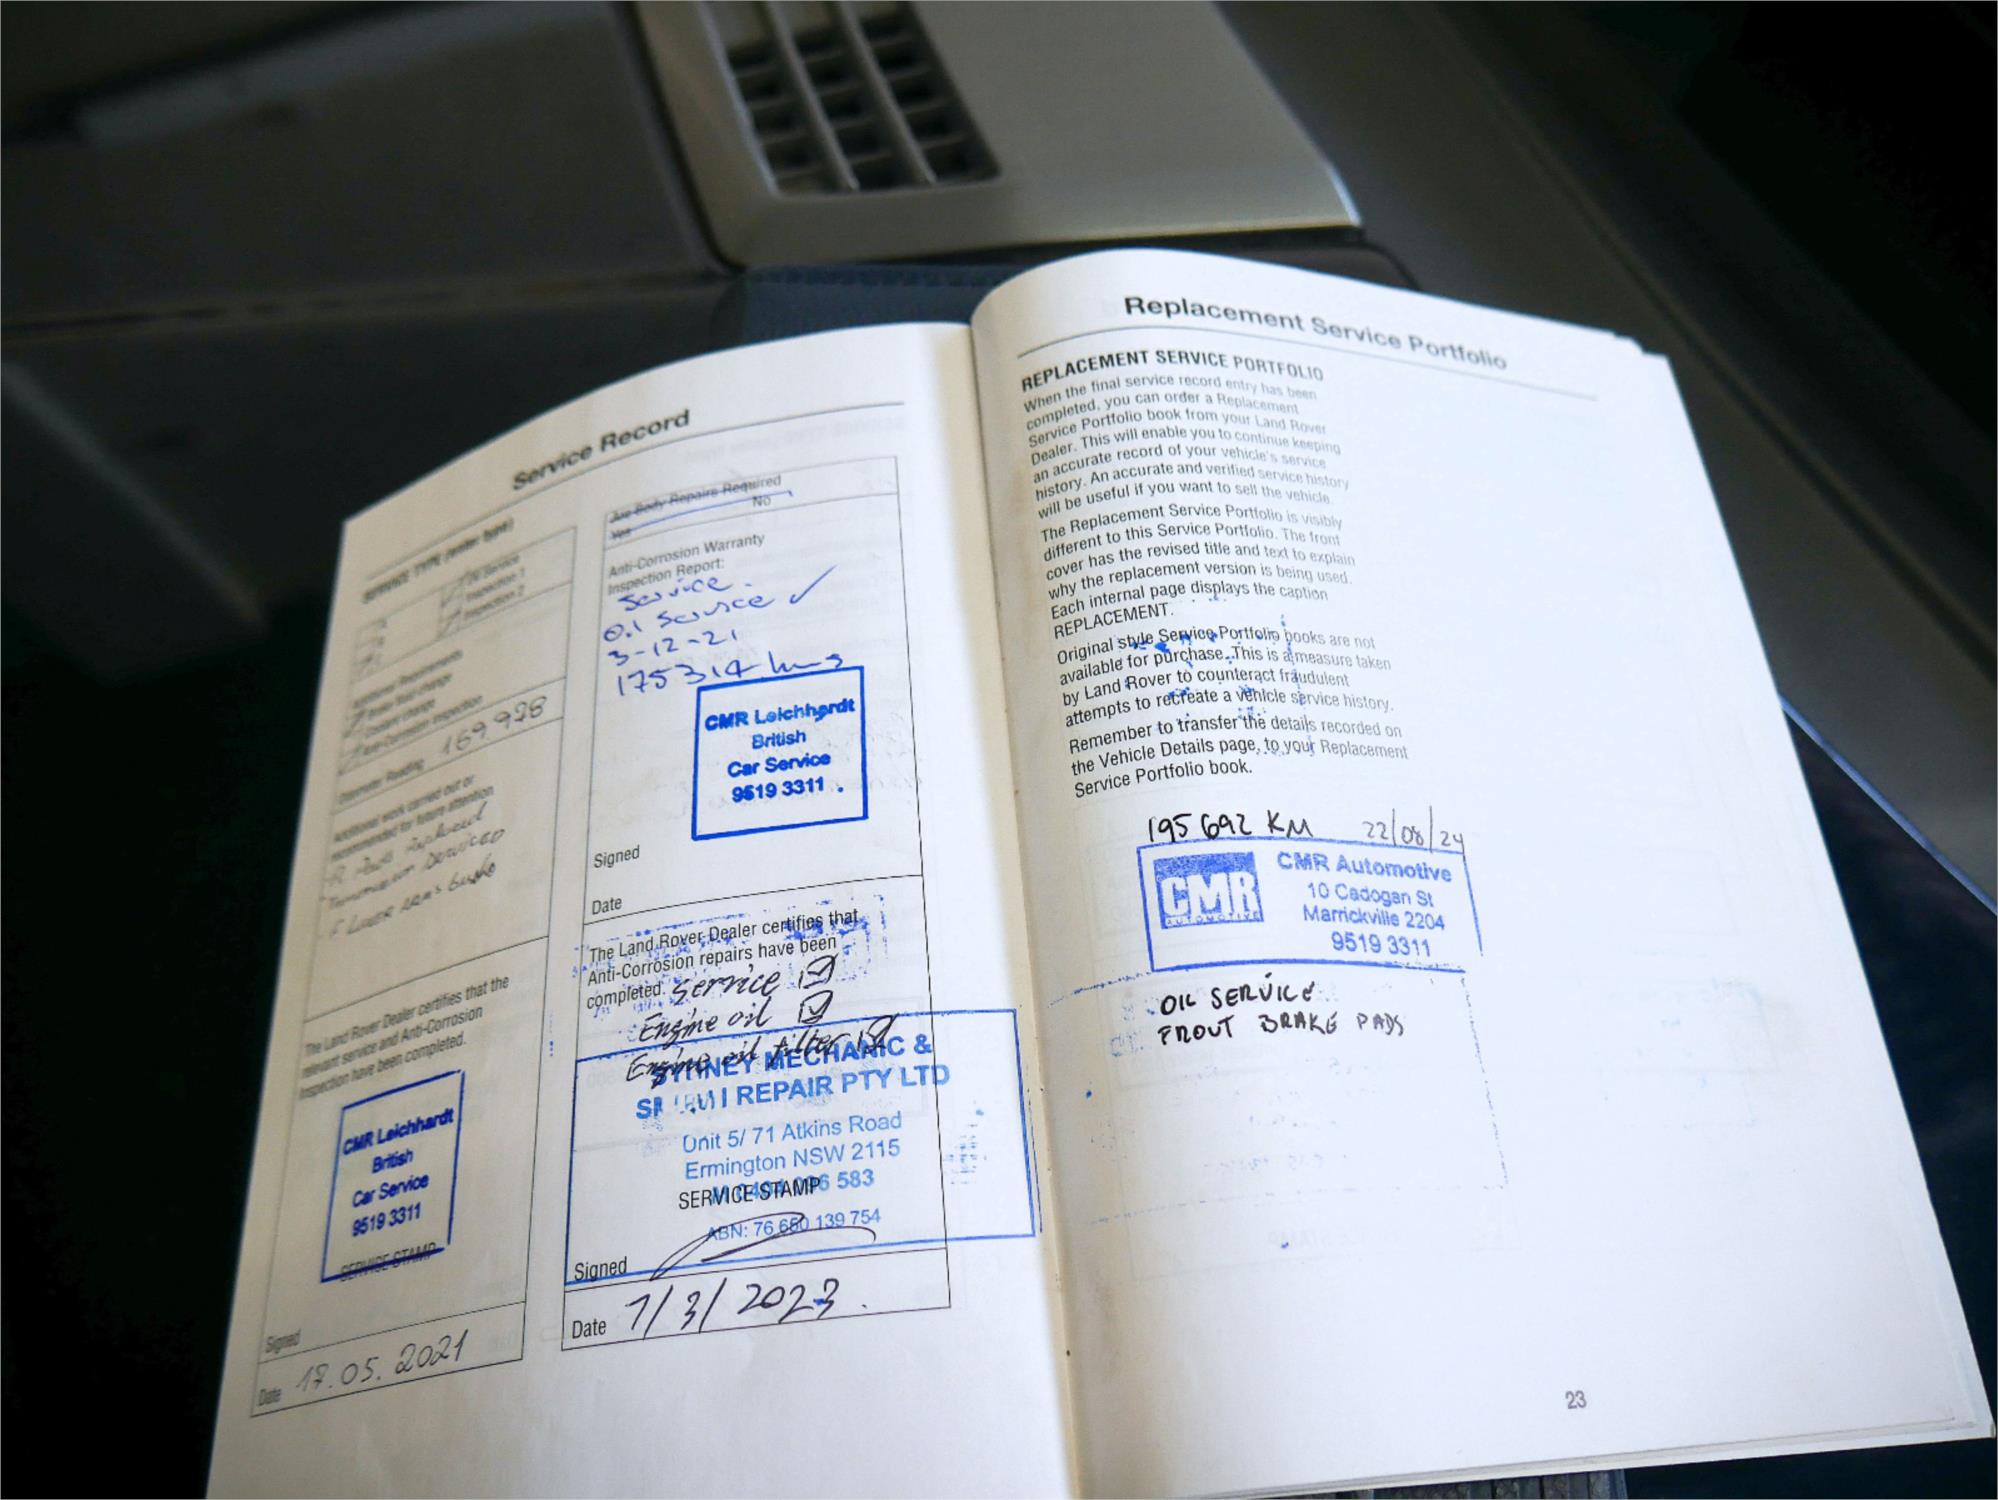 Service Record
SERVICE TYPE (enter type)
Inspection 1
Inspection 2
Additional Requirements
Brake fluid change
Coolant change
Anti-Corrosion Inspection
Odometer Reading 169 928
Additional work carried out or
recommended for future attention
Transmission Serviced
F Lower arms bushs
The Land Rover Dealer certifies that the
relevant service and Anti-Corrosion
Inspection have been completed.
CMR Leichhardt
British
Car Service
9519 3311
SERVICE STAMP
Signed
Date 17.05.2021
Are Body Repairs Required
Yes No
Anti-Corrosion Warranty
Inspection Report:
Service
Service ✓
3-12-21
175314 kms
CMR Leichhardt
British
Car Service
9519 3311
Signed
Date
The Land Rover Dealer certifies that
Anti-Corrosion repairs have been
completed. Service ☑
Engine oil ☑
Engine oil filter ☑
SYDNEY MECHANIC &
REPAIR PTY LTD
Unit 5/ 71 Atkins Road
Ermington NSW 2115
583
SERVICE STAMP
ABN: 76 650 139 754
Signed
Date 7/3/2023.
Replacement Service Portfolio
REPLACEMENT SERVICE PORTFOLIO
When the final service record entry has been
completed, you can order a Replacement
Service Portfolio book from your Land Rover
Dealer. This will enable you to continue keeping
an accurate record of your vehicle's service
history. An accurate and verified service history
will be useful if you want to sell the vehicle.
The Replacement Service Portfolio is visibly
different to this Service Portfolio. The front
cover has the revised title and text to explain
why the replacement version is being used.
Each internal page displays the caption
REPLACEMENT.
Original style Service Portfolio books are not
available for purchase. This is a measure taken
by Land Rover to counteract fraudulent
attempts to recreate a vehicle service history.
Remember to transfer the details recorded on
the Vehicle Details page, to your Replacement
Service Portfolio book.
195 692 KM 22/08/24
CMR
AUTOMOTIVE
CMR Automotive
10 Cadogan St
Marrickville 2204
9519 3311
OIL SERVICE
FROUT BRAKE PADS
23